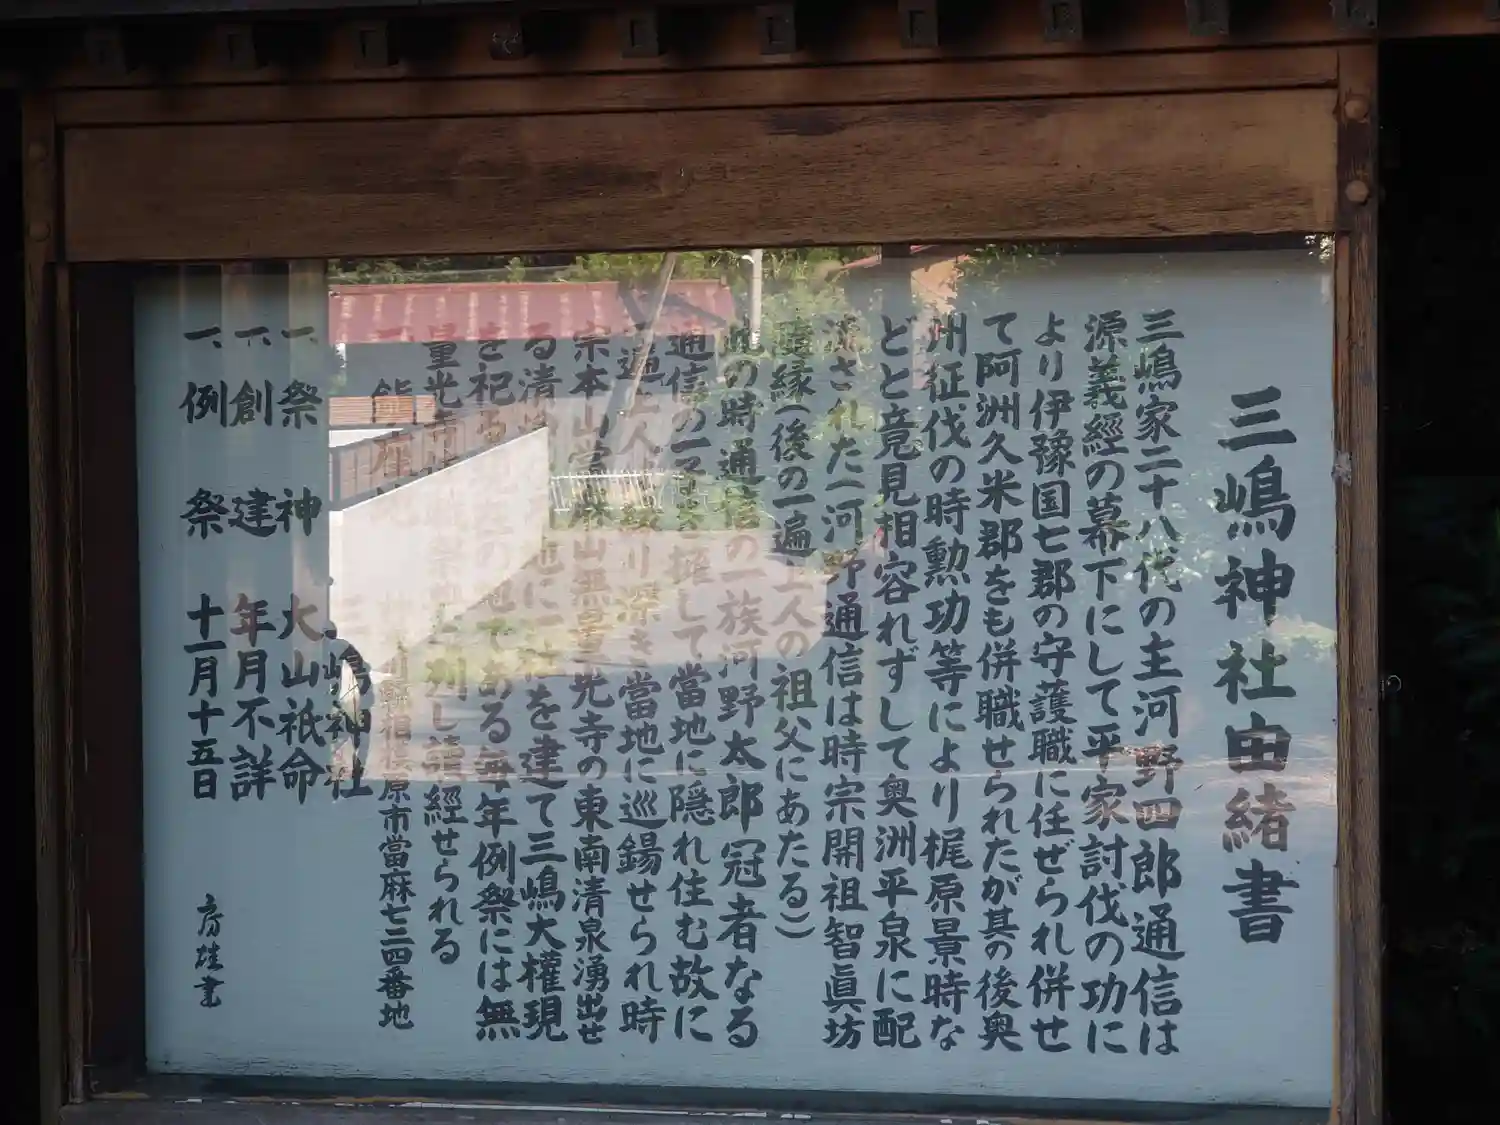 三嶋神社由緒書
三嶋家二十八代の主河野四郎通信は
源義經の幕下にして平家討伐の功に
より伊豫国七郡の守護職に任ぜられ併せ
て阿洲久米郡をも併職せられたが其の後奥
州征伐の時勲功等により梶原景時な
どと竟見相容れずして奥洲平泉に配
流された(河野通信は時宗開祖智眞坊
遺縁(後の一遍上人の祖父にあたる)
此の時通信の一族河野太郎冠者なる
通信の一子を擁して當地に隠れ住む故に
一遍上人り深き當地に巡錫せられ時
宗本山當麻山無量光寺の東南清泉湧出せ
る清地に一社を建て三嶋大權現
を祀るの地である毎年例祭には無
量光寺列し讀經せられる
一、鎮座地 神奈川縣相模原市當麻七二四番地
三嶋神社
一、祭神 大山祇命
一、創建 年月不詳
一、例祭 十一月十五日
房雄書